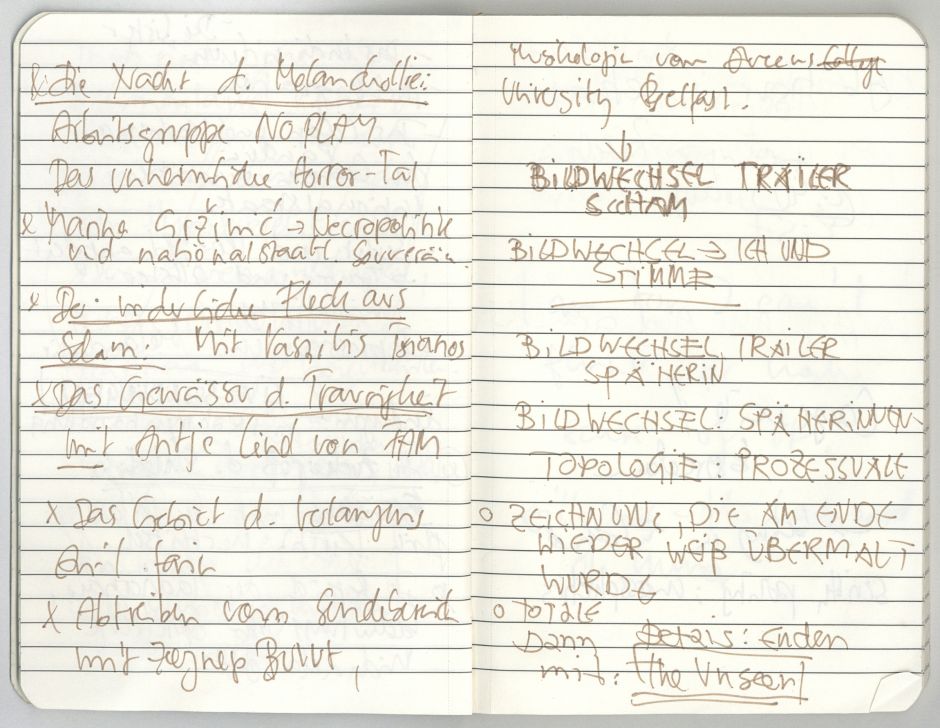 x Die Nacht d. Melancholie:
Arbeitsgruppe NO PLAY
Das unheimliche Horror-Tal
x Marina Gržinić → Necropolitik
und nationalstaatl. Souverän.
x Der inderliche Fleck aus
Selam: Mit Vassilis Tsianos
x Das Gewässer d. Traurigkeit
mit Antje Lind von FAM
x Das Gebiet d. Verlangens
x Abtreiben vom Sendebereich
mit Zeynep Bulut,
Musikologin vom Queens College
University Belfast.
↓
BILDWECHSEL TRAILER
SCHAM
BILDWECHSEL → ICH UND
STIMME
BILDWECHSEL, TRAILER
SPÄHERIN
BILDWECHSEL: SPÄHERINNEN-
TOPOLOGIE: PROZESSUALE
o ZEICHNUNG, DIE AM ENDE
WIEDER WEIß ÜBERMALT
WURDE
o TOTALE
Dann Details: Enden
mit: The Unseen